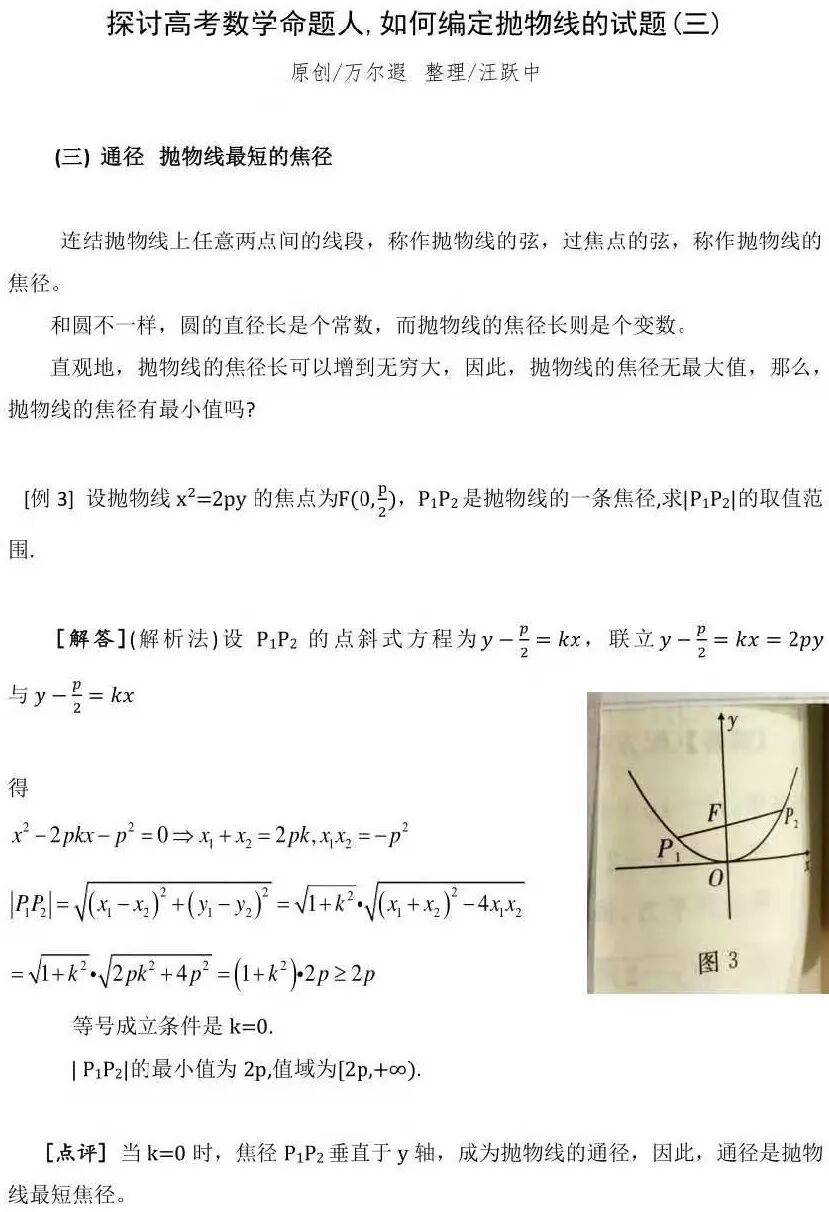 探讨高考数学命题人,如何编定抛物线的试题(三)
原创/万尔遐 整理/汪跃中
(三) 通径 抛物线最短的焦径
连结抛物线上任意两点间的线段，称作抛物线的弦，过焦点的弦，称作抛物线的
焦径。
和圆不一样，圆的直径长是个常数，而抛物线的焦径长则是个变数。
直观地，抛物线的焦径长可以增到无穷大，因此，抛物线的焦径无最大值，那么，
抛物线的焦径有最小值吗?
[例 3] 设抛物线 x²=2py 的焦点为F(0,p/2)，P₁P₂是抛物线的一条焦径,求|P₁P₂|的取值范
围.
[解答](解析法)设 P₁P₂ 的点斜式方程为y − p/2 = kx，联立y − p/2 = kx = 2py
与 y − p/2 = kx
得
x² − 2pkx − p² = 0 ⇒ x₁ + x₂ = 2pk, x₁x₂ = −p²
|P₁P₂| = √((x₁ − x₂)² + (y₁ − y₂)²) = √(1+k²)•√((x₁ + x₂)² − 4x₁x₂)
= √(1+k²)•√(2pk² + 4p²) = (1+k²)•2p ≥ 2p
y
F
P₂
P₁
x
O
图 3
等号成立条件是 k=0.
| P₁P₂|的最小值为 2p,值域为[2p,+∞).
[点评] 当 k=0 时，焦径 P₁P₂ 垂直于 y 轴，成为抛物线的通径，因此，通径是抛物
线最短焦径。